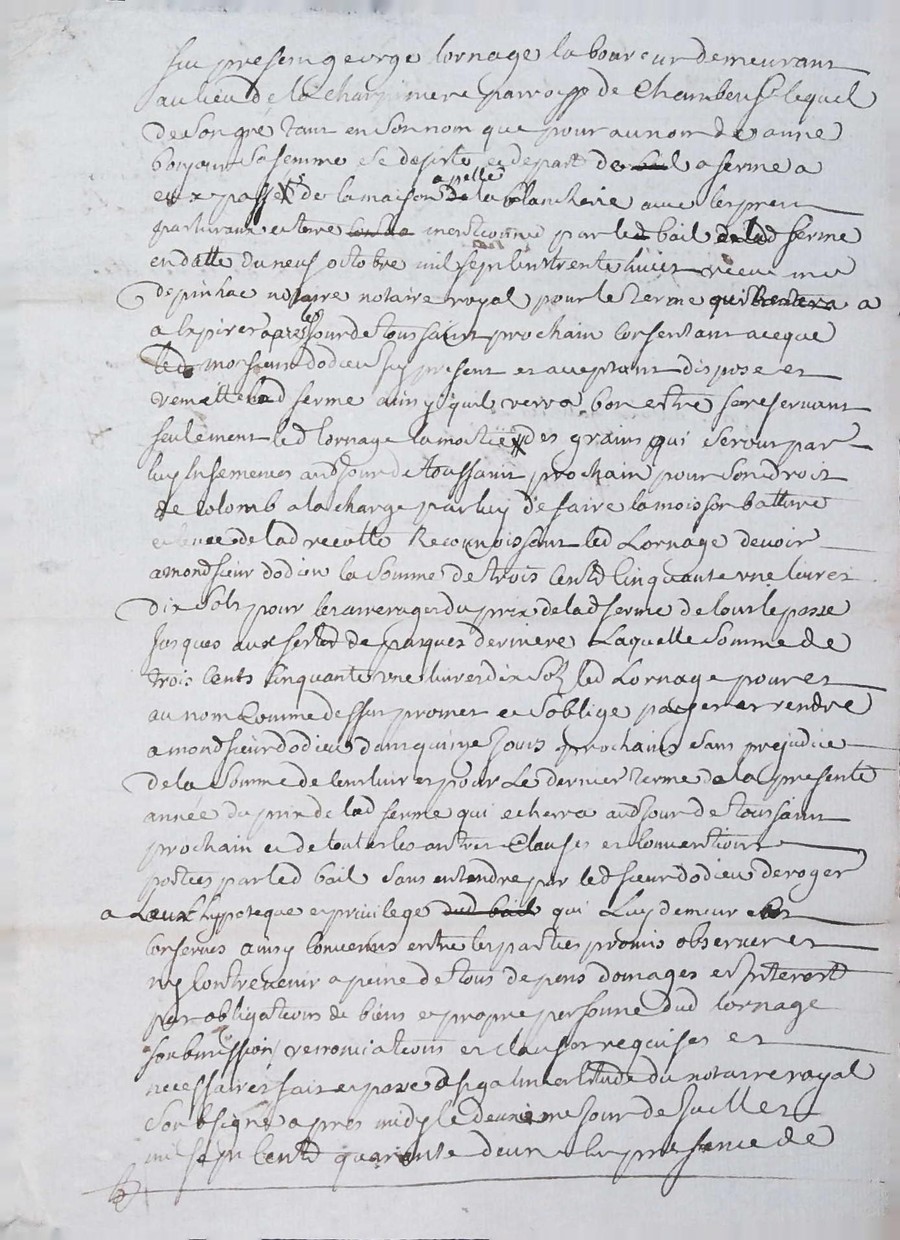 fut present george Cornage laboureur demeurant
au lieu de la parroisse de Chambeuf lequel
de son gré tant en son nom que pour au nom de anne
bonjour sa femme se desiste et depart de bail a ferme a
eux passé de la maison apellé de la blancherie avec les prez
paturaux et terre mentionné par led bail de lad ferme
en datte du neuf octobre mil sept cent trente huict receu me
depinhac notaire notaire royal pour le terme qui restera a
a expirer apres le jour de toussaint prochain consentant a ce que
led monsieur dodieu sy present et acceptant dispose et
remette lad ferme ainsy qu'il verra bon estre se reservant
seulement led Cornage la moitié des grains qui seront par
luy ensemencés aud jour de toussaint prochain pour son droit
de colomb a la charge par luy de faire la moisson batture
et de lad recolte Reconnoissant led Cornage devoir
a mond sieur dodieu la somme de trois cents cinquante une livres
dix sols pour les arrerages du prix de lad ferme de tout le passé
jusques aux festes de pasques derniere Laquelle somme de
trois cents cinquante une livres dix sols led Cornage pour et
au nom Comme dessus promet et s'oblige payer et rendre
a mond sieur dodieu dans quinze jours prochains sans prejudice
de la somme de cent livres pour Le dernier terme de la presente
année du prix de lad ferme qui echerra aud jour de toussaint
prochain et de toutes les autres Clauses et conventions
portées par led bail sans entendre par led sieur dodieu deroger
a Leux hypoteque et privilege dud bail qui Luy demeure
conservés ainsy convenus entre les parties promis observer et
ny contrevenir a peine de tous depens domages et interest
par obligations de biens et propre personne dud Cornage
soubmission renonciations et clauses requises et
necessaires fait et passé a st galmier etude du notaire royal
soubsigné apres midy le deuxieme jour de Juillet
mil sept cents quarante deux En presence de